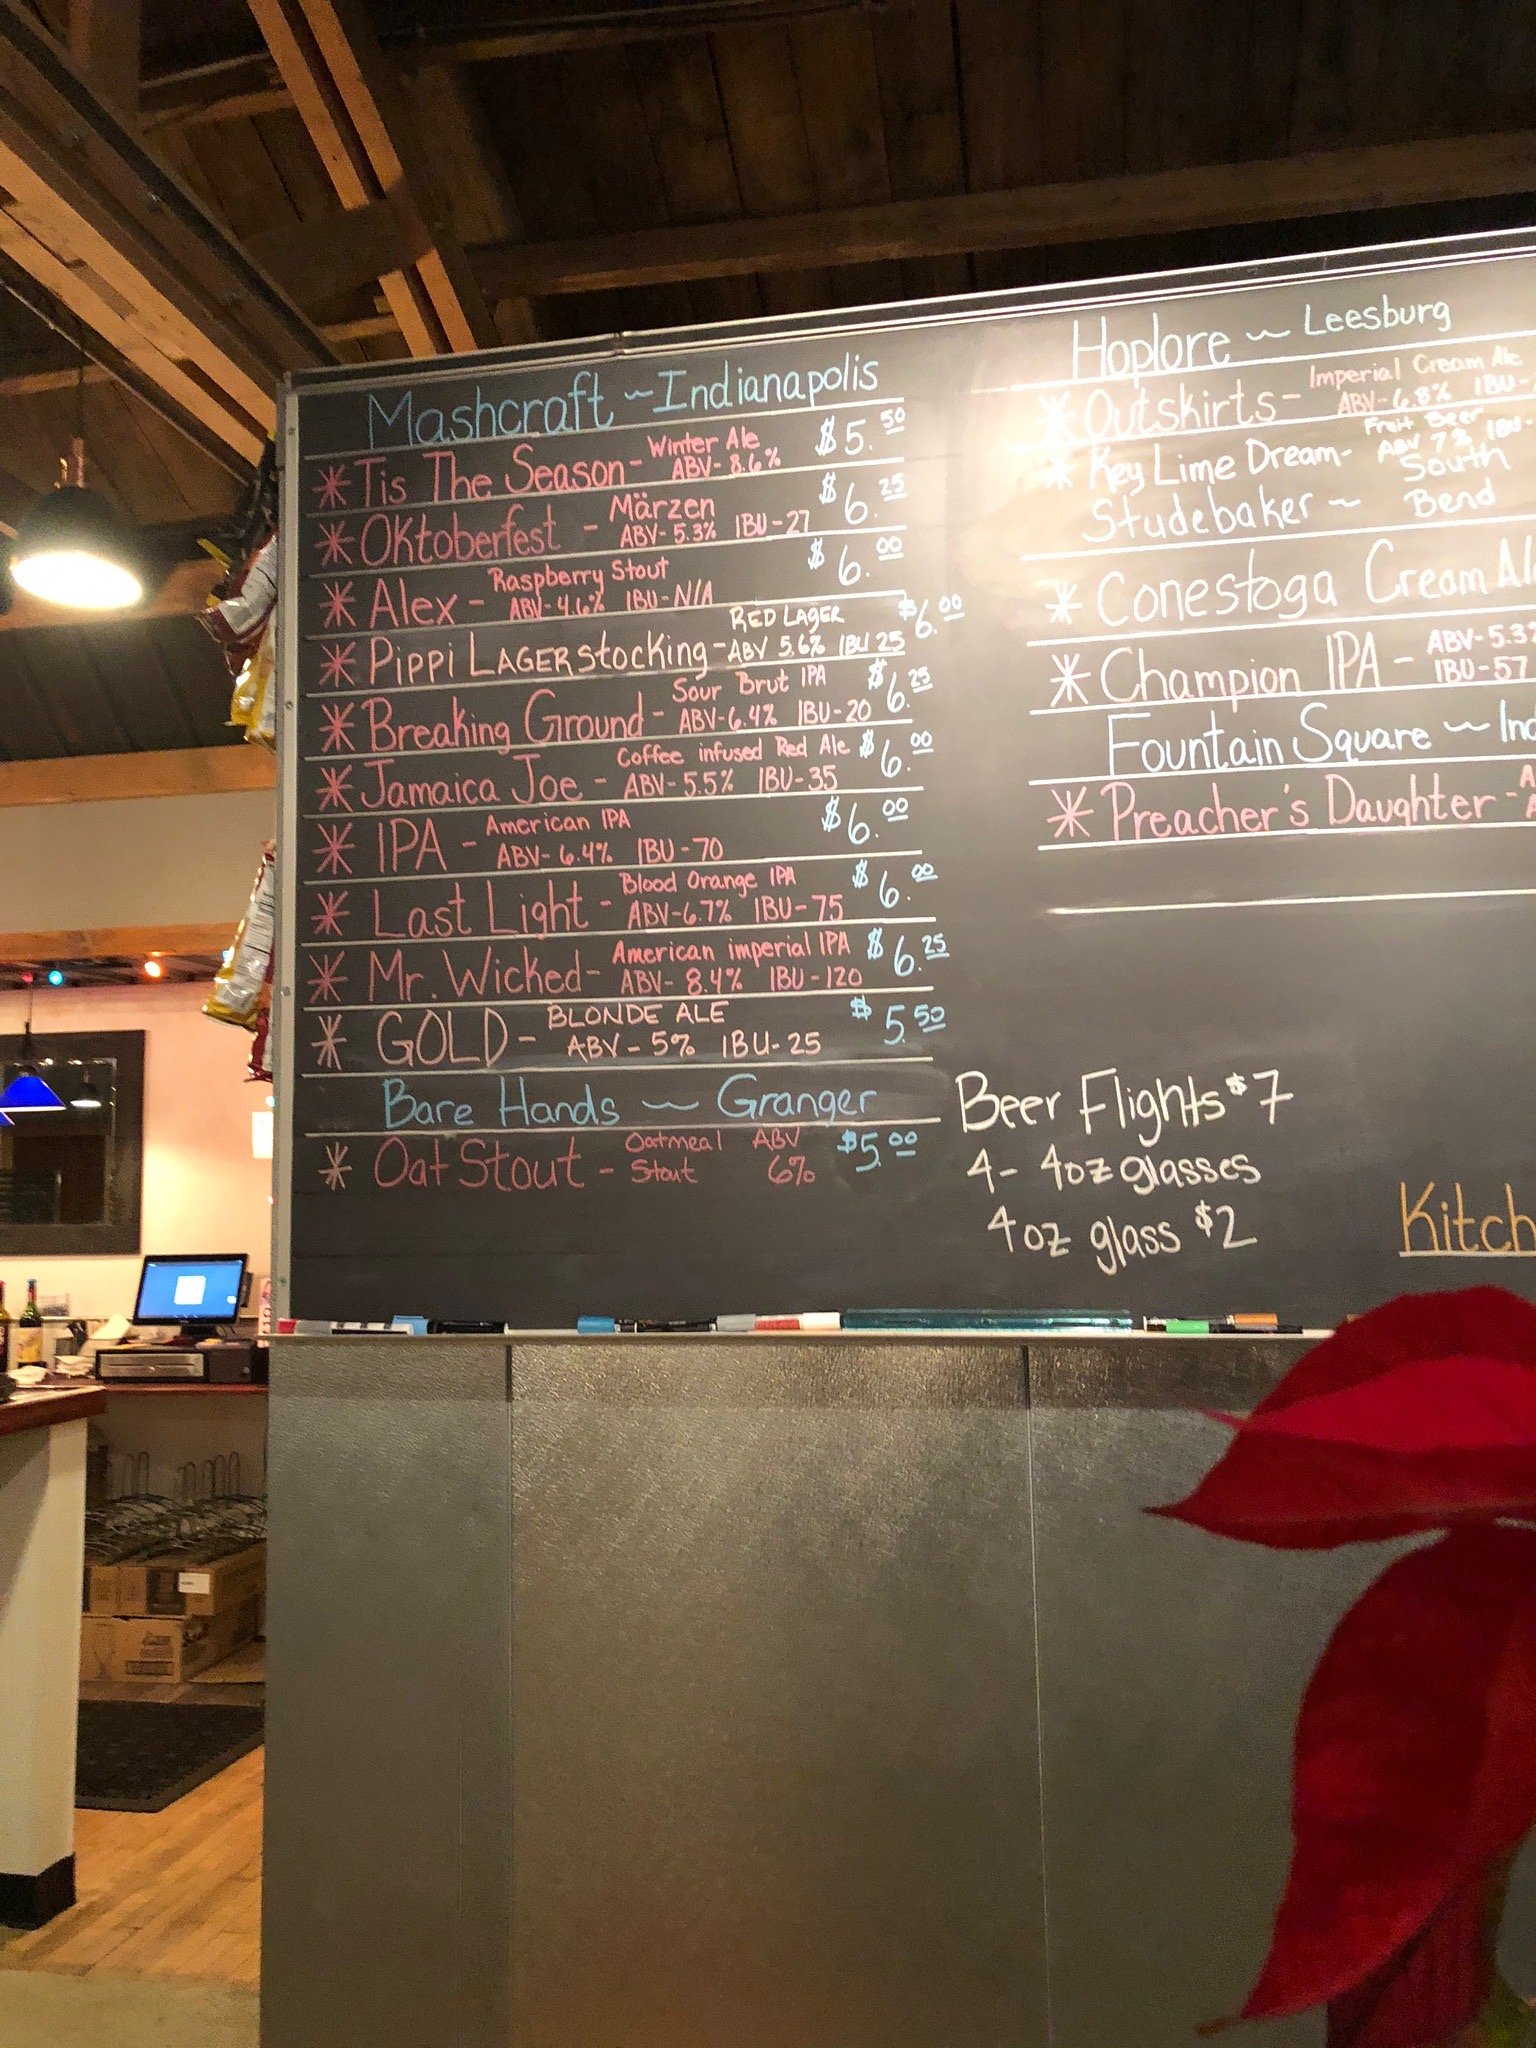 Mashcraft ~ Indianapolis
* Tis The Season - Winter Ale $5.50
ABV- 8.6%
* Oktoberfest - Märzen $6.25
ABV- 5.3% IBU-27
* Alex - Raspberry Stout $6.00
ABV- 4.6% IBU-N/A
* Pippi LAGERstocking - RED LAGER $6.00
ABV 5.6% IBU 25
* Breaking Ground - Sour Brut IPA $6.25
ABV-6.4% IBU-20
* Jamaica Joe - Coffee infused Red Ale $6.00
ABV- 5.5% IBU-35
* IPA - American IPA $6.00
ABV- 6.4% IBU-70
* Last Light - Blood Orange IPA $6.00
ABV-6.7% IBU-75
* Mr. Wicked - American imperial IPA $6.25
ABV- 8.4% IBU-120
* GOLD - BLONDE ALE $5.50
ABV- 5% IBU-25
Bare Hands ~ Granger
* Oat Stout - Oatmeal Stout ABV 6% $5.00
Hoplore ~ Leesburg
* Outskirts - Imperial Cream Ale
ABV-6.8% IBU-
* Key Lime Dream - Fruit Beer
ABV 7% IBU-
Studebaker ~ South Bend
* Conestoga Cream Al
* Champion IPA - ABV-5.3
IBU-57
Fountain Square ~ Ind
* Preacher's Daughter -
Beer Flights $7
4- 4oz glasses
4oz glass $2
Kitch